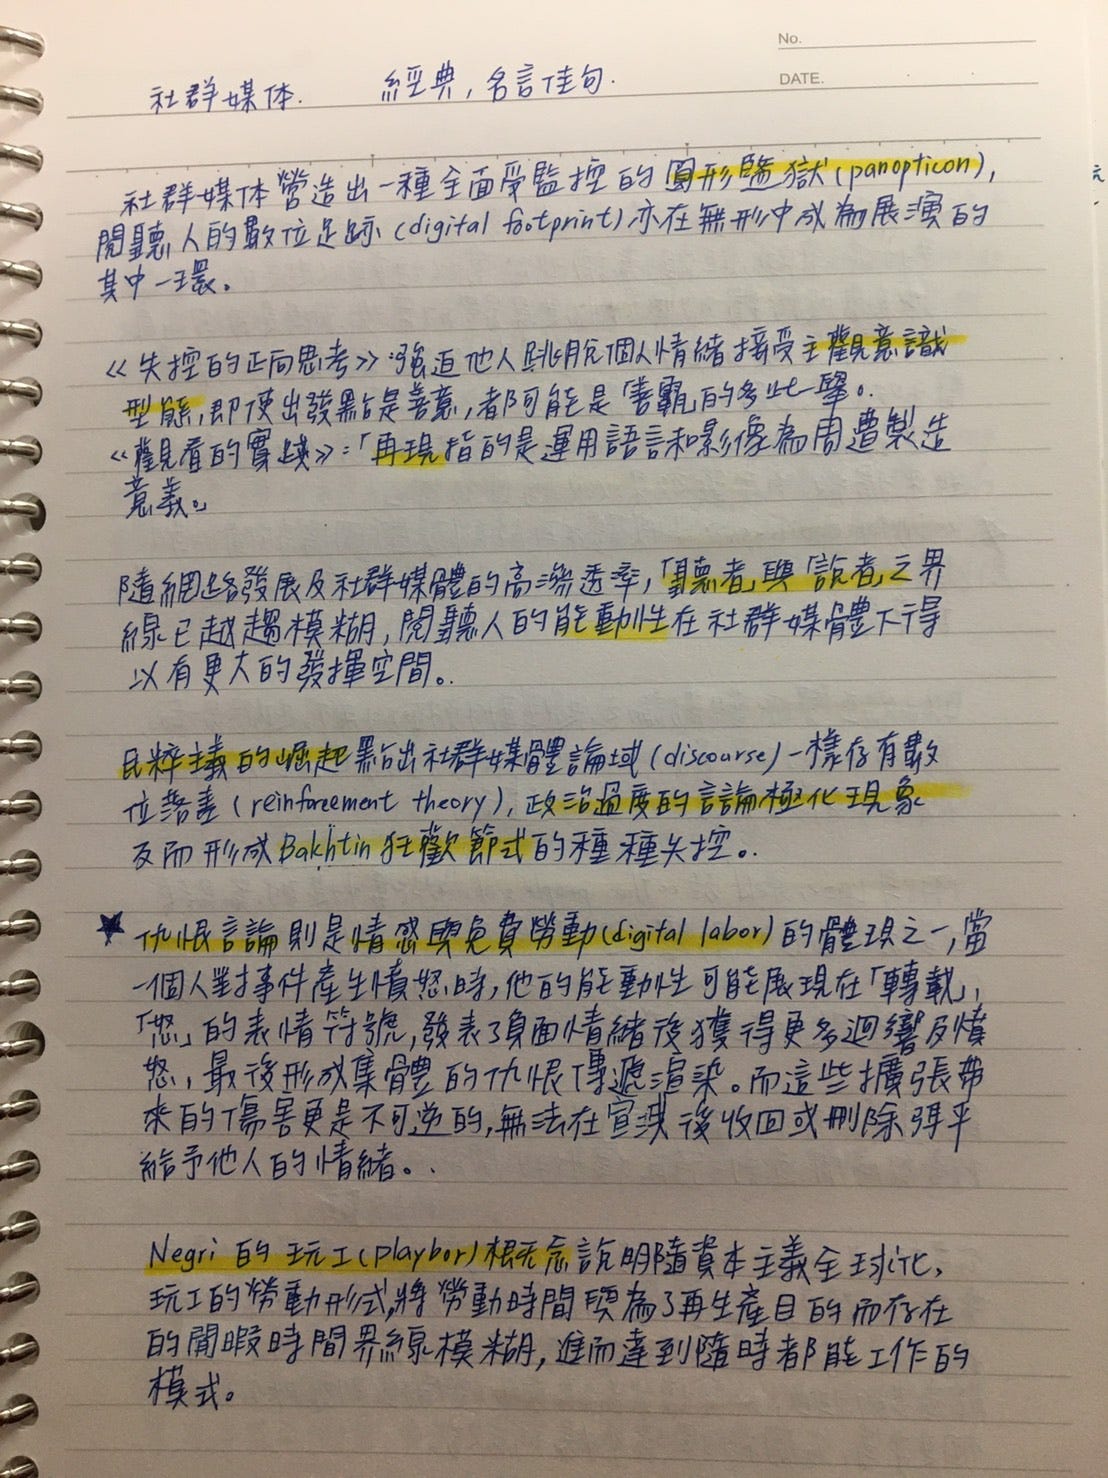 No.
DATE.
社群媒体. 經典,名言佳句.
社群媒体營造出一種全面受監控的圓形監獄(panopticon),
閱聽人的數位足跡(digital footprint)亦在無形中成為展演的
其中一環。
《失控的正向思考》:強迫他人跳脫個人情緒接受主觀意識
型態,即使出發點是善意,都可能是「善霸」的多此一舉。
《觀看的實踐》:「再現指的是運用語言和影像為周遭製造
意義。」
隨網路發展及社群媒體的高滲透率,「聽者」與「說者」之界
線已越趨模糊,閱聽人的能動性在社群媒體下得
以有更大的發揮空間。
民粹主義的崛起點出社群媒體論域(discourse)一樣存有數
位落差(reinforcement theory),政治過度的言論極化現象
反而形成Bakhtin狂歡節式的種種失控。
仇恨言論則是情感與免費勞動(digital labor)的體現之一,當
一個人對事件產生憤怒時,他的能動性可能展現在「轉載」、
「怒」的表情符號,發表了負面情緒後獲得更多迴響及憤
怒,最後形成集體的仇恨傳遞渲染。而這些擴張帶
來的傷害更是不可逆的,無法在宣洩後收回或刪除弭平
給予他人的情緒。
Negri的玩工(playbor)概念說明隨資本主義全球化,
玩工的勞動形式,將勞動時間與為了再生產目的而存在
的閒暇時間界線模糊,進而達到隨時都能工作的
模式。